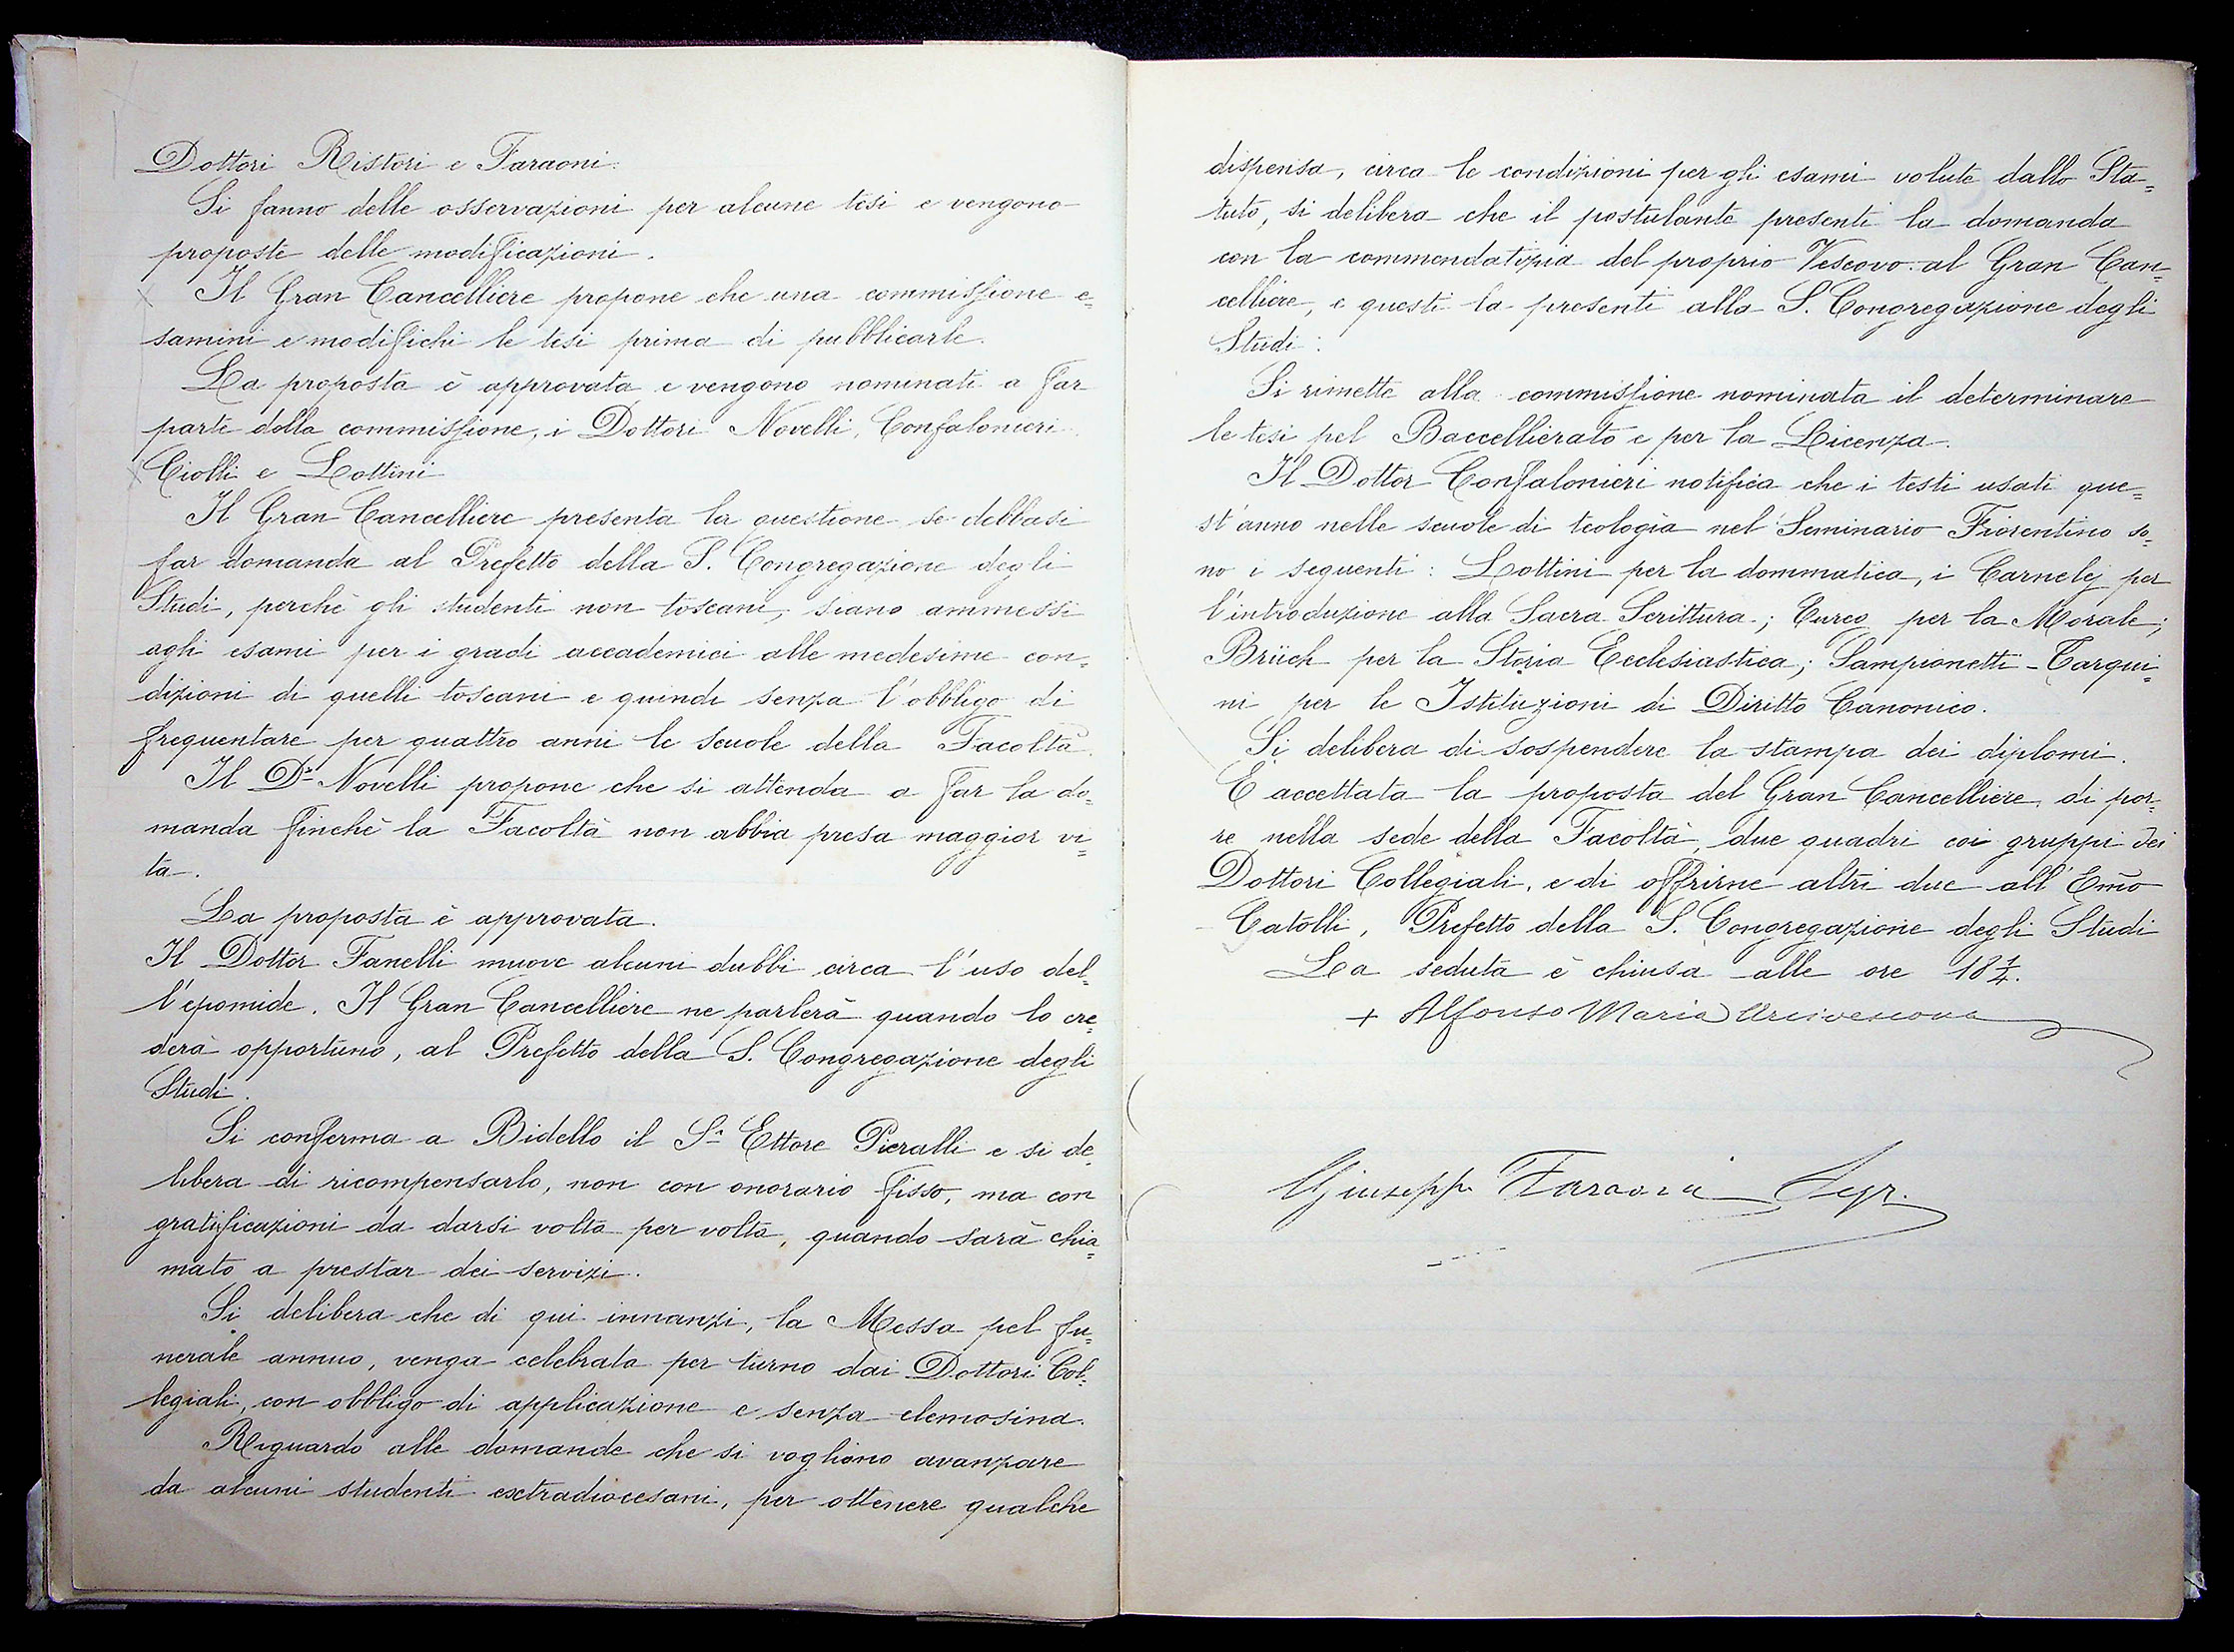 Dottori Ristori e Faraoni.
Si fanno delle osservazioni per alcune tesi e vengono
proposte delle modificazioni.
Il Gran Cancelliere propone che una commissione e=
samini e modifichi le tesi prima di pubblicarle.
La proposta è approvata e vengono nominati a far
parte della commissione, i Dottori Novelli, Confalonieri
Ciolli e Lottini
Il Gran Cancelliere presenta la questione se debbasi
far domanda al Prefetto della S. Congregazione degli
Studi, perchè gli studenti non toscani, siano ammessi
agli esami per i gradi accademici alle medesime con=
dizioni di quelli toscani e quindi senza l'obbligo di
frequentare per quattro anni le scuole della Facoltà.
Il Dr Novelli propone che si attenda a far la do=
manda finchè la Facoltà non abbia presa maggior vi=
ta.
La proposta è approvata.
Il Dottor Fanelli muove alcuni dubbi circa l'uso del=
l'epomide. Il Gran Cancelliere ne parlerà quando lo cre=
derà opportuno, al Prefetto della S. Congregazione degli
Studi.
Si conferma a Bidello il Sr Ettore Pieralli e si de=
libera di ricompensarlo, non con onorario fisso, ma con
gratificazioni da darsi volta per volta, quando sarà chia=
mato a prestar dei servizi.
Si delibera che di qui innanzi, la Messa pel fu=
nerale annuo, venga celebrata per turno dai Dottori Col=
legiali, con obbligo di applicazione e senza elemosina.
Riguardo alle domande che si vogliono avanzare
da alcuni studenti extradiocesani, per ottenere qualche
dispensa, circa le condizioni per gli esami volute dallo Sta=
tuto, si delibera che il postulante presenti la domanda
con la commendatizia del proprio Vescovo al Gran Can=
celliere, e questi la presenti alla S. Congregazione degli
Studi.
Si rimette alla commissione nominata il determinare
le tesi pel Baccellierato e per la Licenza.
Il Dottor Confalonieri notifica che i testi usati que=
st'anno nelle scuole di teologia nel Seminario Fiorentino so=
no i seguenti: Lottini per la dommatica, i Cornelej per
l'introduzione alla Sacra Scrittura; Curco per la Morale;
Brüch per la Storia Ecclesiastica; Sampionetti-Tarqui=
ni per le Istituzioni di Diritto Canonico.
Si delibera di sospendere la stampa dei diplomi.
E accettata la proposta del Gran Cancelliere, di por=
re nella sede della Facoltà, due quadri coi gruppi dei
Dottori Collegiali, e di offrirne altri due all'Emo
Catolli, Prefetto della S. Congregazione degli Studi
La seduta è chiusa alle ore 18 1/4.
+ Alfonso Maria Arcivescovo
Giuseppe Faraoni Segr.